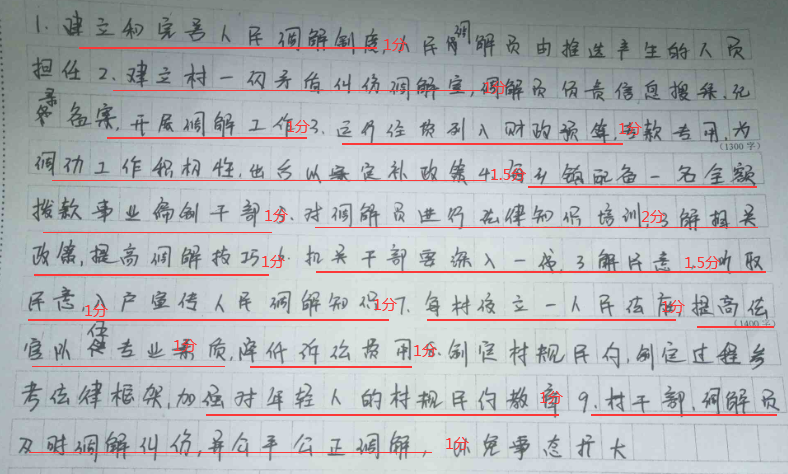 1. 建立和完善人民调解制度,人民调解员由推选产生的人员
担任 2. 建立村一级矛盾纠纷调解室,调解员负责信息搜集、记
录备案,开展调解工作 3. 运行经费列入财政预算,专款专用,为
调动工作积极性,出台以案定补政策 4. 每乡镇配备一名全额
拨款事业编制干部 5. 对调解员进行法律知识培训,了解相关
政策,提高调解技巧 6. 机关干部要深入一线,了解民意,听取
民意,入户宣传人民调解知识 7. 每村设立一人民法庭,提高法
官队伍专业素质,降低诉讼费用 8. 制定村规民约,制定过程参
考法律框架,加强对年轻人的村规民约教育 9. 村干部、调解员
及时调解纠纷,并公平公正调解,以免事态扩大
1分
1分
1分
1分
1.5分
1分
2分
1分
1.5分
1分
1分
1分
1分
1分
1分
1分
(1300字)
(1400字)